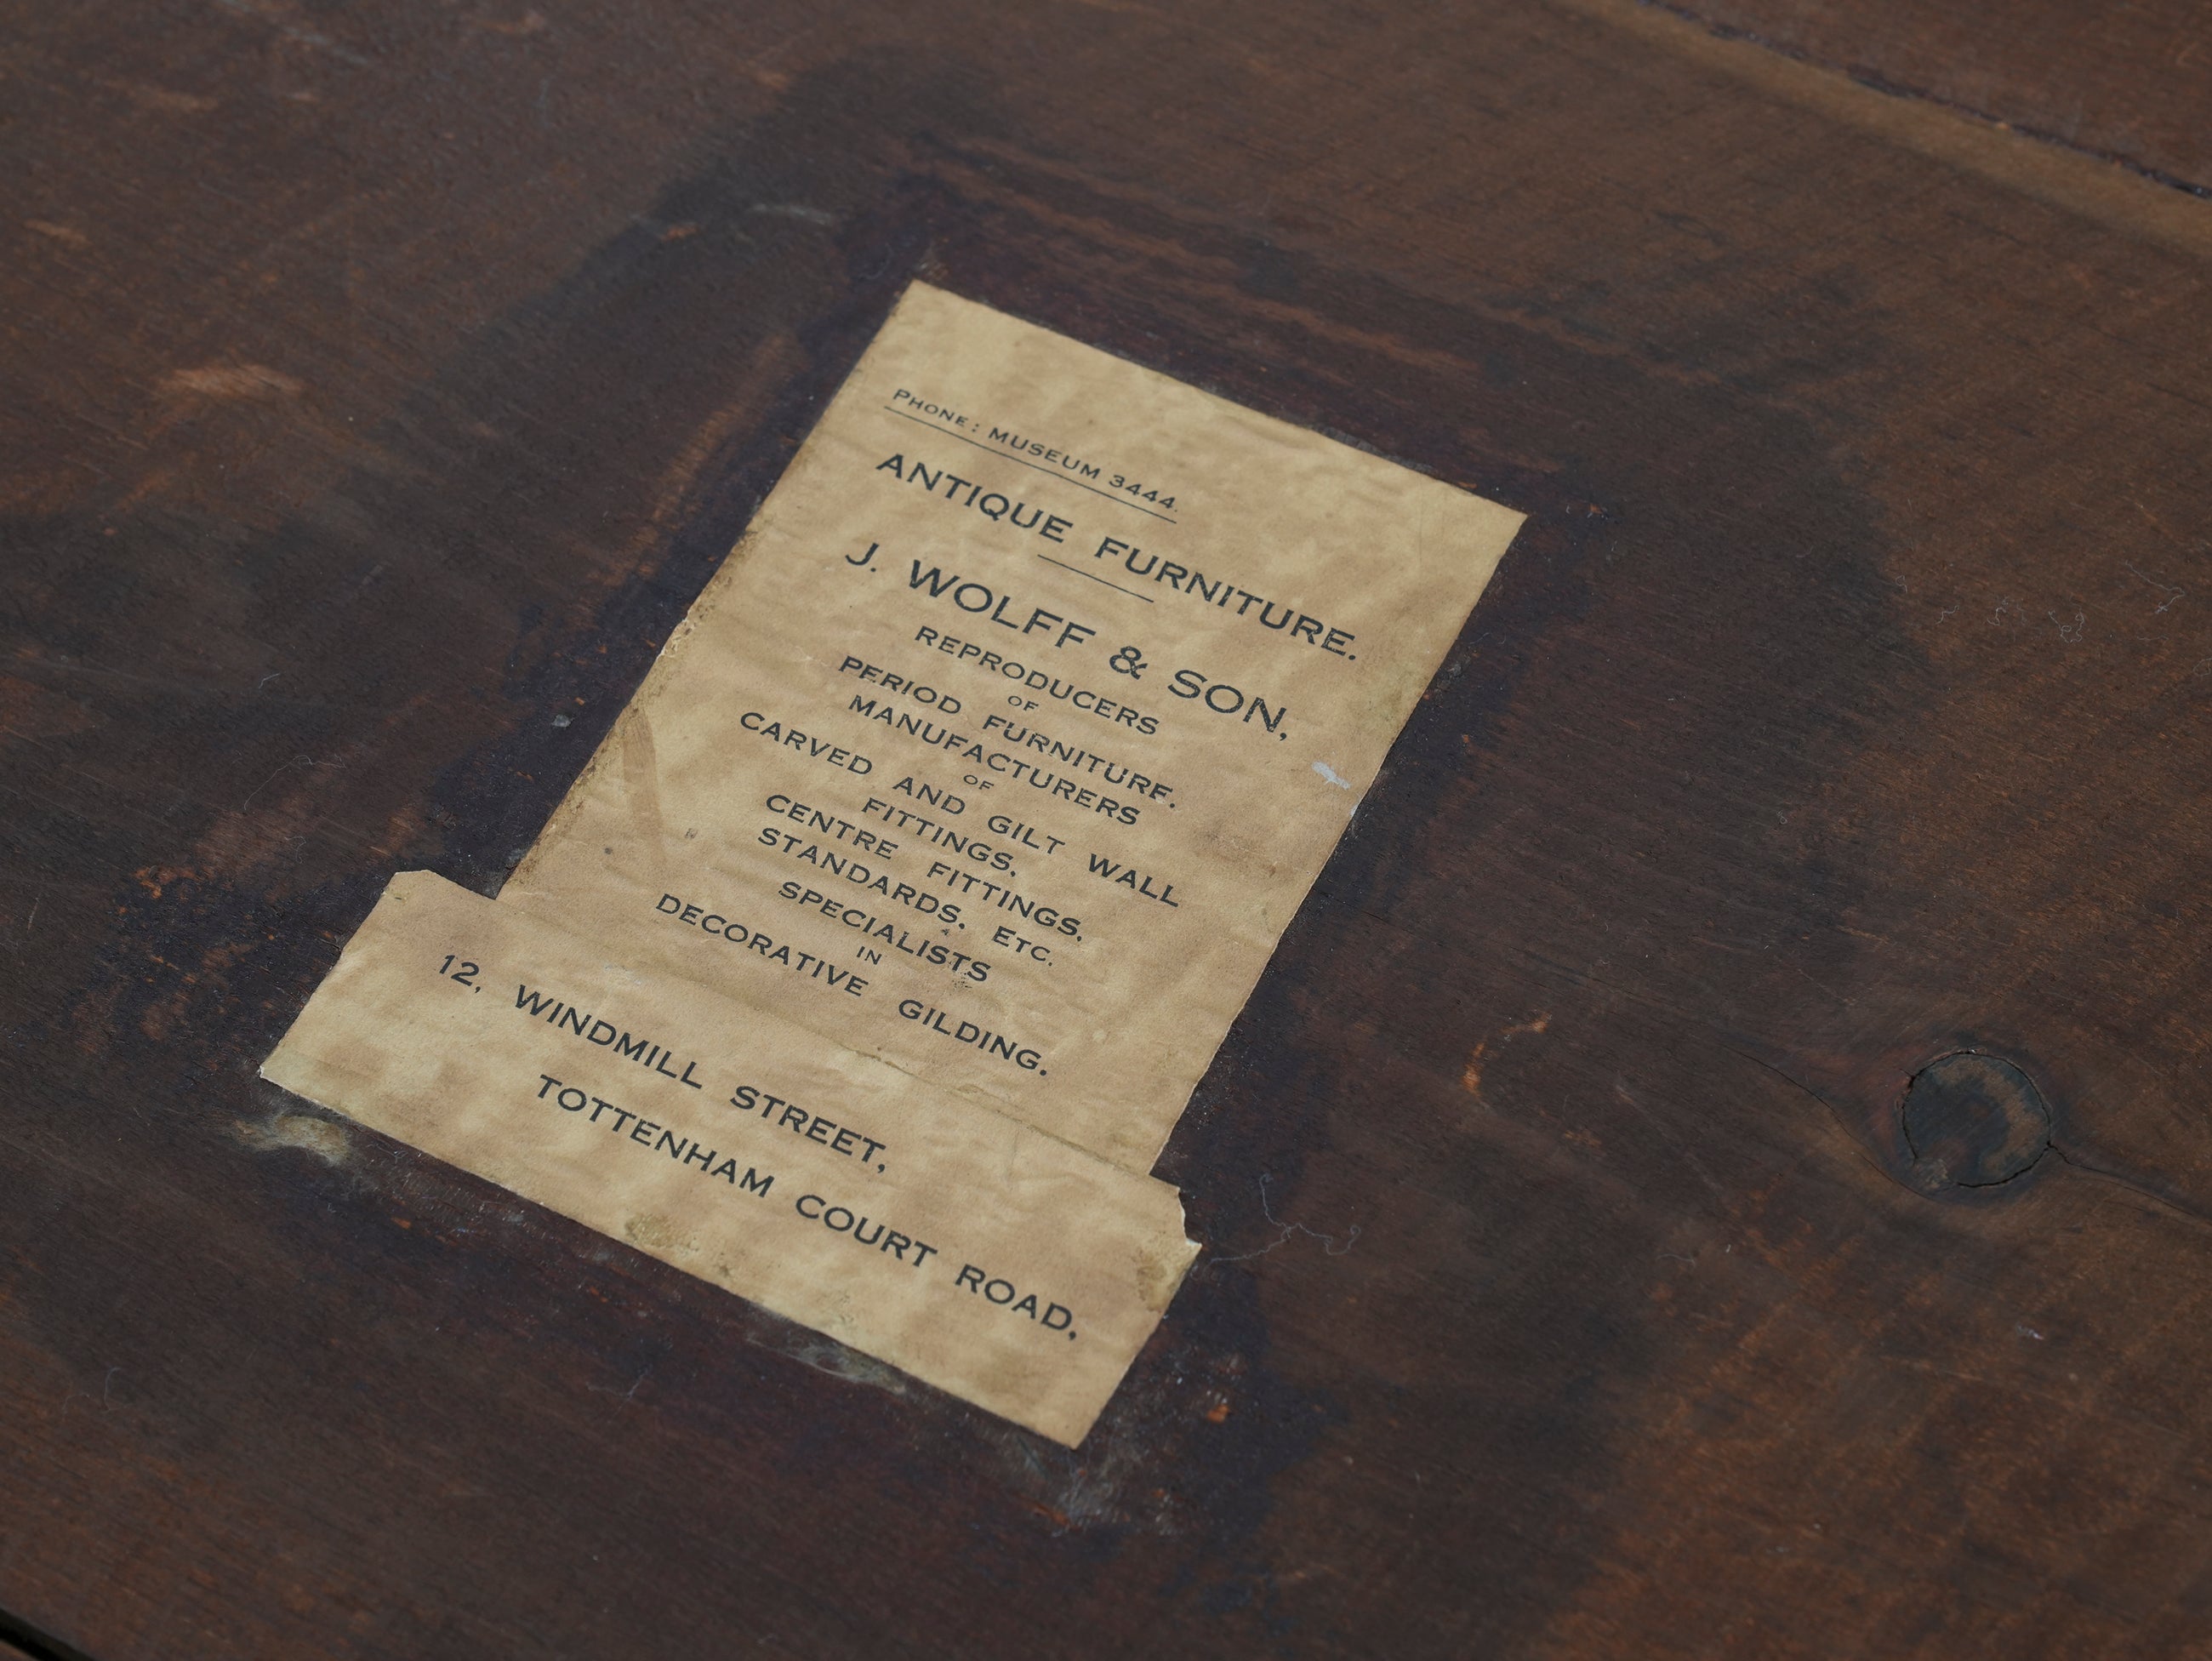 PHONE: MUSEUM 3444.
ANTIQUE FURNITURE.
J. WOLFF & SON,
REPRODUCERS
OF
PERIOD FURNITURE.
MANUFACTURERS
OF
CARVED AND GILT WALL
FITTINGS.
CENTRE FITTINGS.
STANDARDS. ETC.
SPECIALISTS
IN
DECORATIVE GILDING.
12, WINDMILL STREET,
TOTTENHAM COURT ROAD,